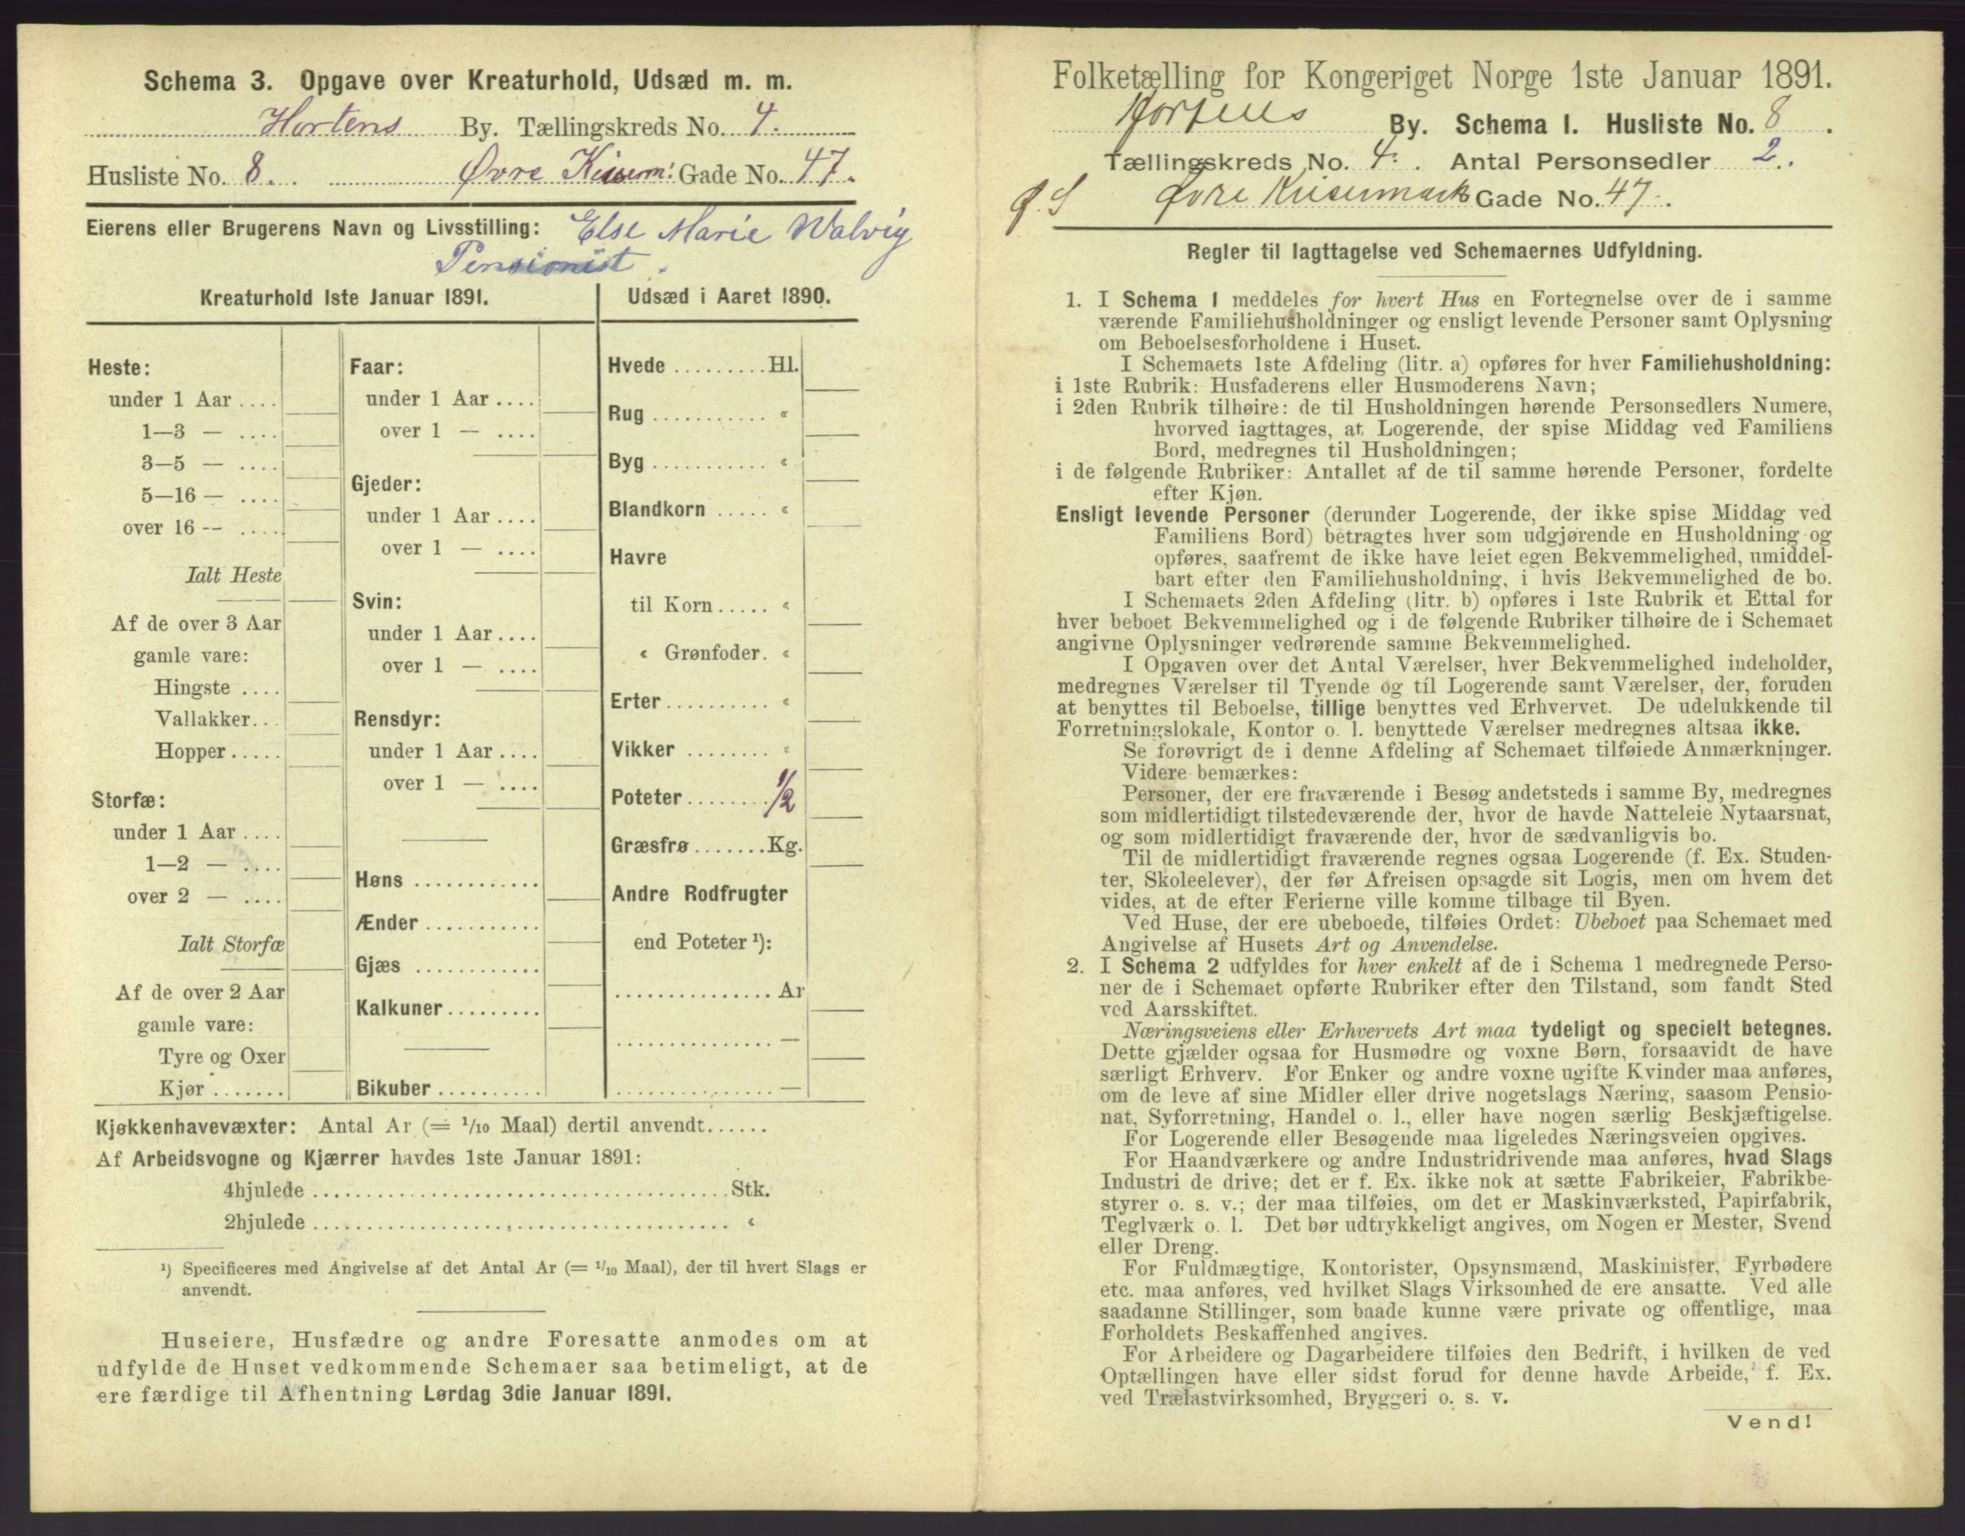 Schema 3. Opgave over Kreaturhold, Udsæd m. m.
Hortens By. Tællingskreds No. 4.
Husliste No. 8. Øvre Keiserm: Gade No. 47.
Eierens eller Brugerens Navn og Livsstilling: Else Marie Walvig
Pensionist.
Kreaturhold 1ste Januar 1891.
Heste:
under 1 Aar ....
1—3 — ....
3—5 — ....
5—16 — ....
over 16 -- ....
Ialt Heste
Af de over 3 Aar
gamle vare:
Hingste ....
Vallakker...
Hopper.....
Storfæ:
under 1 Aar ....
1—2 — ....
over 2 — ....
Ialt Storfæ
Af de over 2 Aar
gamle vare:
Tyre og Oxer
Kjør .......
Faar:
under 1 Aar ....
over 1 — ....
Gjeder:
under 1 Aar ....
over 1 — ....
Svin:
under 1 Aar ....
over 1 — ....
Rensdyr:
under 1 Aar ....
over 1 — ....
Høns ............
Ænder ...........
Gjæs ............
Kalkuner.........
Bikuber..........
Udsæd i Aaret 1890.
Hvede .........Hl.
Rug ........... «
Byg ........... «
Blandkorn ..... «
Havre
til Korn ..... «
« Grønfoder. «
Erter.......... «
Vikker ........ «
Poteter........ 1/2
Græsfrø .......Kg.
Andre Rodfrugter
end Poteter ¹):
............... Ar
............... —
............... —
Kjøkkenhavevæxter: Antal Ar (= 1/10 Maal) dertil anvendt......
Af Arbeidsvogne og Kjærrer havdes 1ste Januar 1891:
4hjulede ........................................Stk.
2hjulede ........................................ «
¹) Specificeres med Angivelse af det Antal Ar (= 1/10 Maal), der til hvert Slags er
anvendt.
Huseiere, Husfædre og andre Foresatte anmodes om at
udfylde de Huset vedkommende Schemaer saa betimeligt, at de
ere færdige til Afhentning Lørdag 3die Januar 1891.
Folketælling for Kongeriget Norge 1ste Januar 1891.
Hortens By. Schema I. Husliste No. 8.
Tællingskreds No. 4. Antal Personsedler 2.
Ø. S Øvre Keisermarks Gade No. 47.
Regler til Iagttagelse ved Schemaernes Udfyldning.
1. I Schema 1 meddeles for hvert Hus en Fortegnelse over de i samme
værende Familiehusholdninger og ensligt levende Personer samt Oplysning
om Beboelsesforholdene i Huset.
I Schemaets 1ste Afdeling (litr. a) opføres for hver Familiehusholdning:
i 1ste Rubrik: Husfaderens eller Husmoderens Navn;
i 2den Rubrik tilhøire: de til Husholdningen hørende Personsedlers Numere,
hvorved iagttages, at Logerende, der spise Middag ved Familiens
Bord, medregnes til Husholdningen;
i de følgende Rubriker: Antallet af de til samme hørende Personer, fordelte
efter Kjøn.
Ensligt levende Personer (derunder Logerende, der ikke spise Middag ved
Familiens Bord) betragtes hver som udgjørende en Husholdning og
opføres, saafremt de ikke have leiet egen Bekvemmelighed, umiddel-
bart efter den Familiehusholdning, i hvis Bekvemmelighed de bo.
I Schemaets 2den Afdeling (litr. b) opføres i 1ste Rubrik et Ettal for
hver beboet Bekvemmelighed og i de følgende Rubriker tilhøire de i Schemaet
angivne Oplysninger vedrørende samme Bekvemmelighed.
I Opgaven over det Antal Værelser, hver Bekvemmelighed indeholder,
medregnes Værelser til Tyende og til Logerende samt Værelser, der, foruden
at benyttes til Beboelse, tillige benyttes ved Erhvervet. De udelukkende til
Forretningslokale, Kontor o. l. benyttede Værelser medregnes altsaa ikke.
Se forøvrigt de i denne Afdeling af Schemaet tilføiede Anmærkninger.
Videre bemærkes:
Personer, der ere fraværende i Besøg andetsteds i samme By, medregnes
som midlertidigt tilstedeværende der, hvor de havde Natteleie Nytaarsnat,
og som midlertidigt fraværende der, hvor de sædvanligvis bo.
Til de midlertidigt fraværende regnes ogsaa Logerende (f. Ex. Studen-
ter, Skoleelever), der før Afreisen opsagde sit Logis, men om hvem det
vides, at de efter Ferierne ville komme tilbage til Byen.
Ved Huse, der ere ubeboede, tilføies Ordet: Ubeboet paa Schemaet med
Angivelse af Husets Art og Anvendelse.
2. I Schema 2 udfyldes for hver enkelt af de i Schema 1 medregnede Perso-
ner de i Schemaet opførte Rubriker efter den Tilstand, som fandt Sted
ved Aarsskiftet.
Næringsveiens eller Erhvervets Art maa tydeligt og specielt betegnes.
Dette gjælder ogsaa for Husmødre og voxne Børn, forsaavidt de have
særligt Erhverv. For Enker og andre voxne ugifte Kvinder maa anføres,
om de leve af sine Midler eller drive nogetslags Næring, saasom Pensio-
nat, Syforretning, Handel o. l., eller have nogen særlig Beskjæftigelse.
For Logerende eller Besøgende maa ligeledes Næringsveien opgives.
For Haandværkere og andre Industridrivende maa anføres, hvad Slags
Industri de drive; det er f. Ex. ikke nok at sætte Fabrikeier, Fabrikbe-
styrer o. s. v.; der maa tilføies, om det er Maskinværksted, Papirfabrik,
Teglværk o. l. Det bør udtrykkeligt angives, om Nogen er Mester, Svend
eller Dreng.
For Fuldmægtige, Kontorister, Opsynsmænd, Maskinister, Fyrbødere
etc. maa anføres, ved hvilket Slags Virksomhed de ere ansatte. Ved alle
saadanne Stillinger, som baade kunne være private og offentlige, maa
Forholdets Beskaffenhed angives.
For Arbeidere og Dagarbeidere tilføies den Bedrift, i hvilken de ved
Optællingen have eller sidst forud for denne havde Arbeide, f. Ex.
ved Trælastvirksomhed, Bryggeri o. s. v.
Vend!